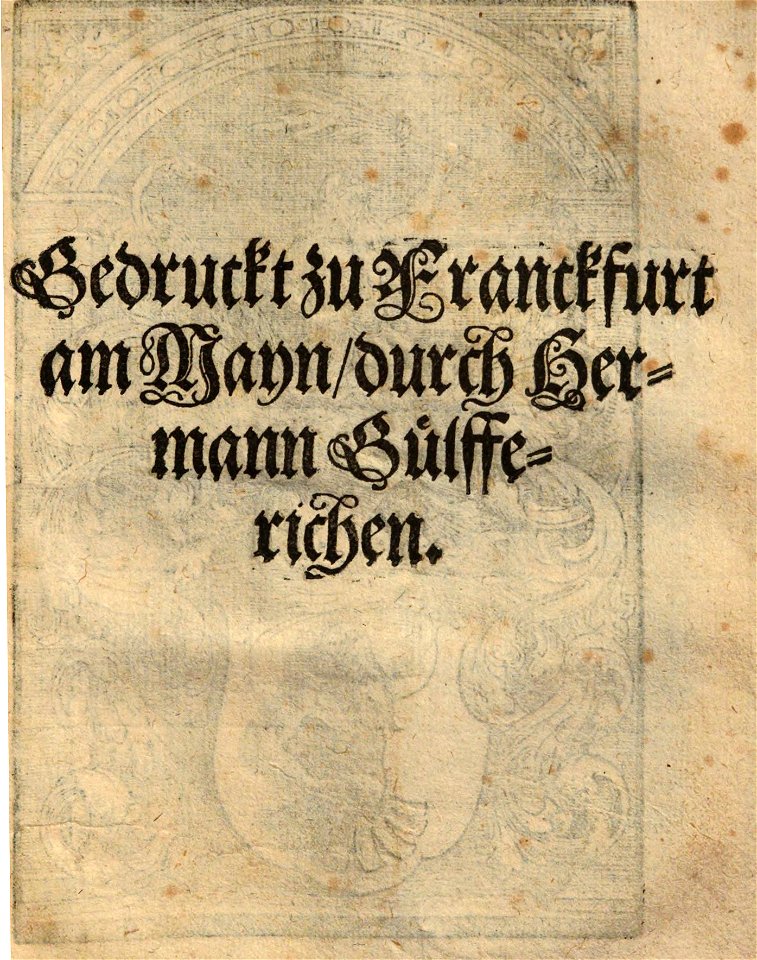 Gedruckt zu Franckfurt
am Mayn/durch Her=
mann Gülffe=
richen.